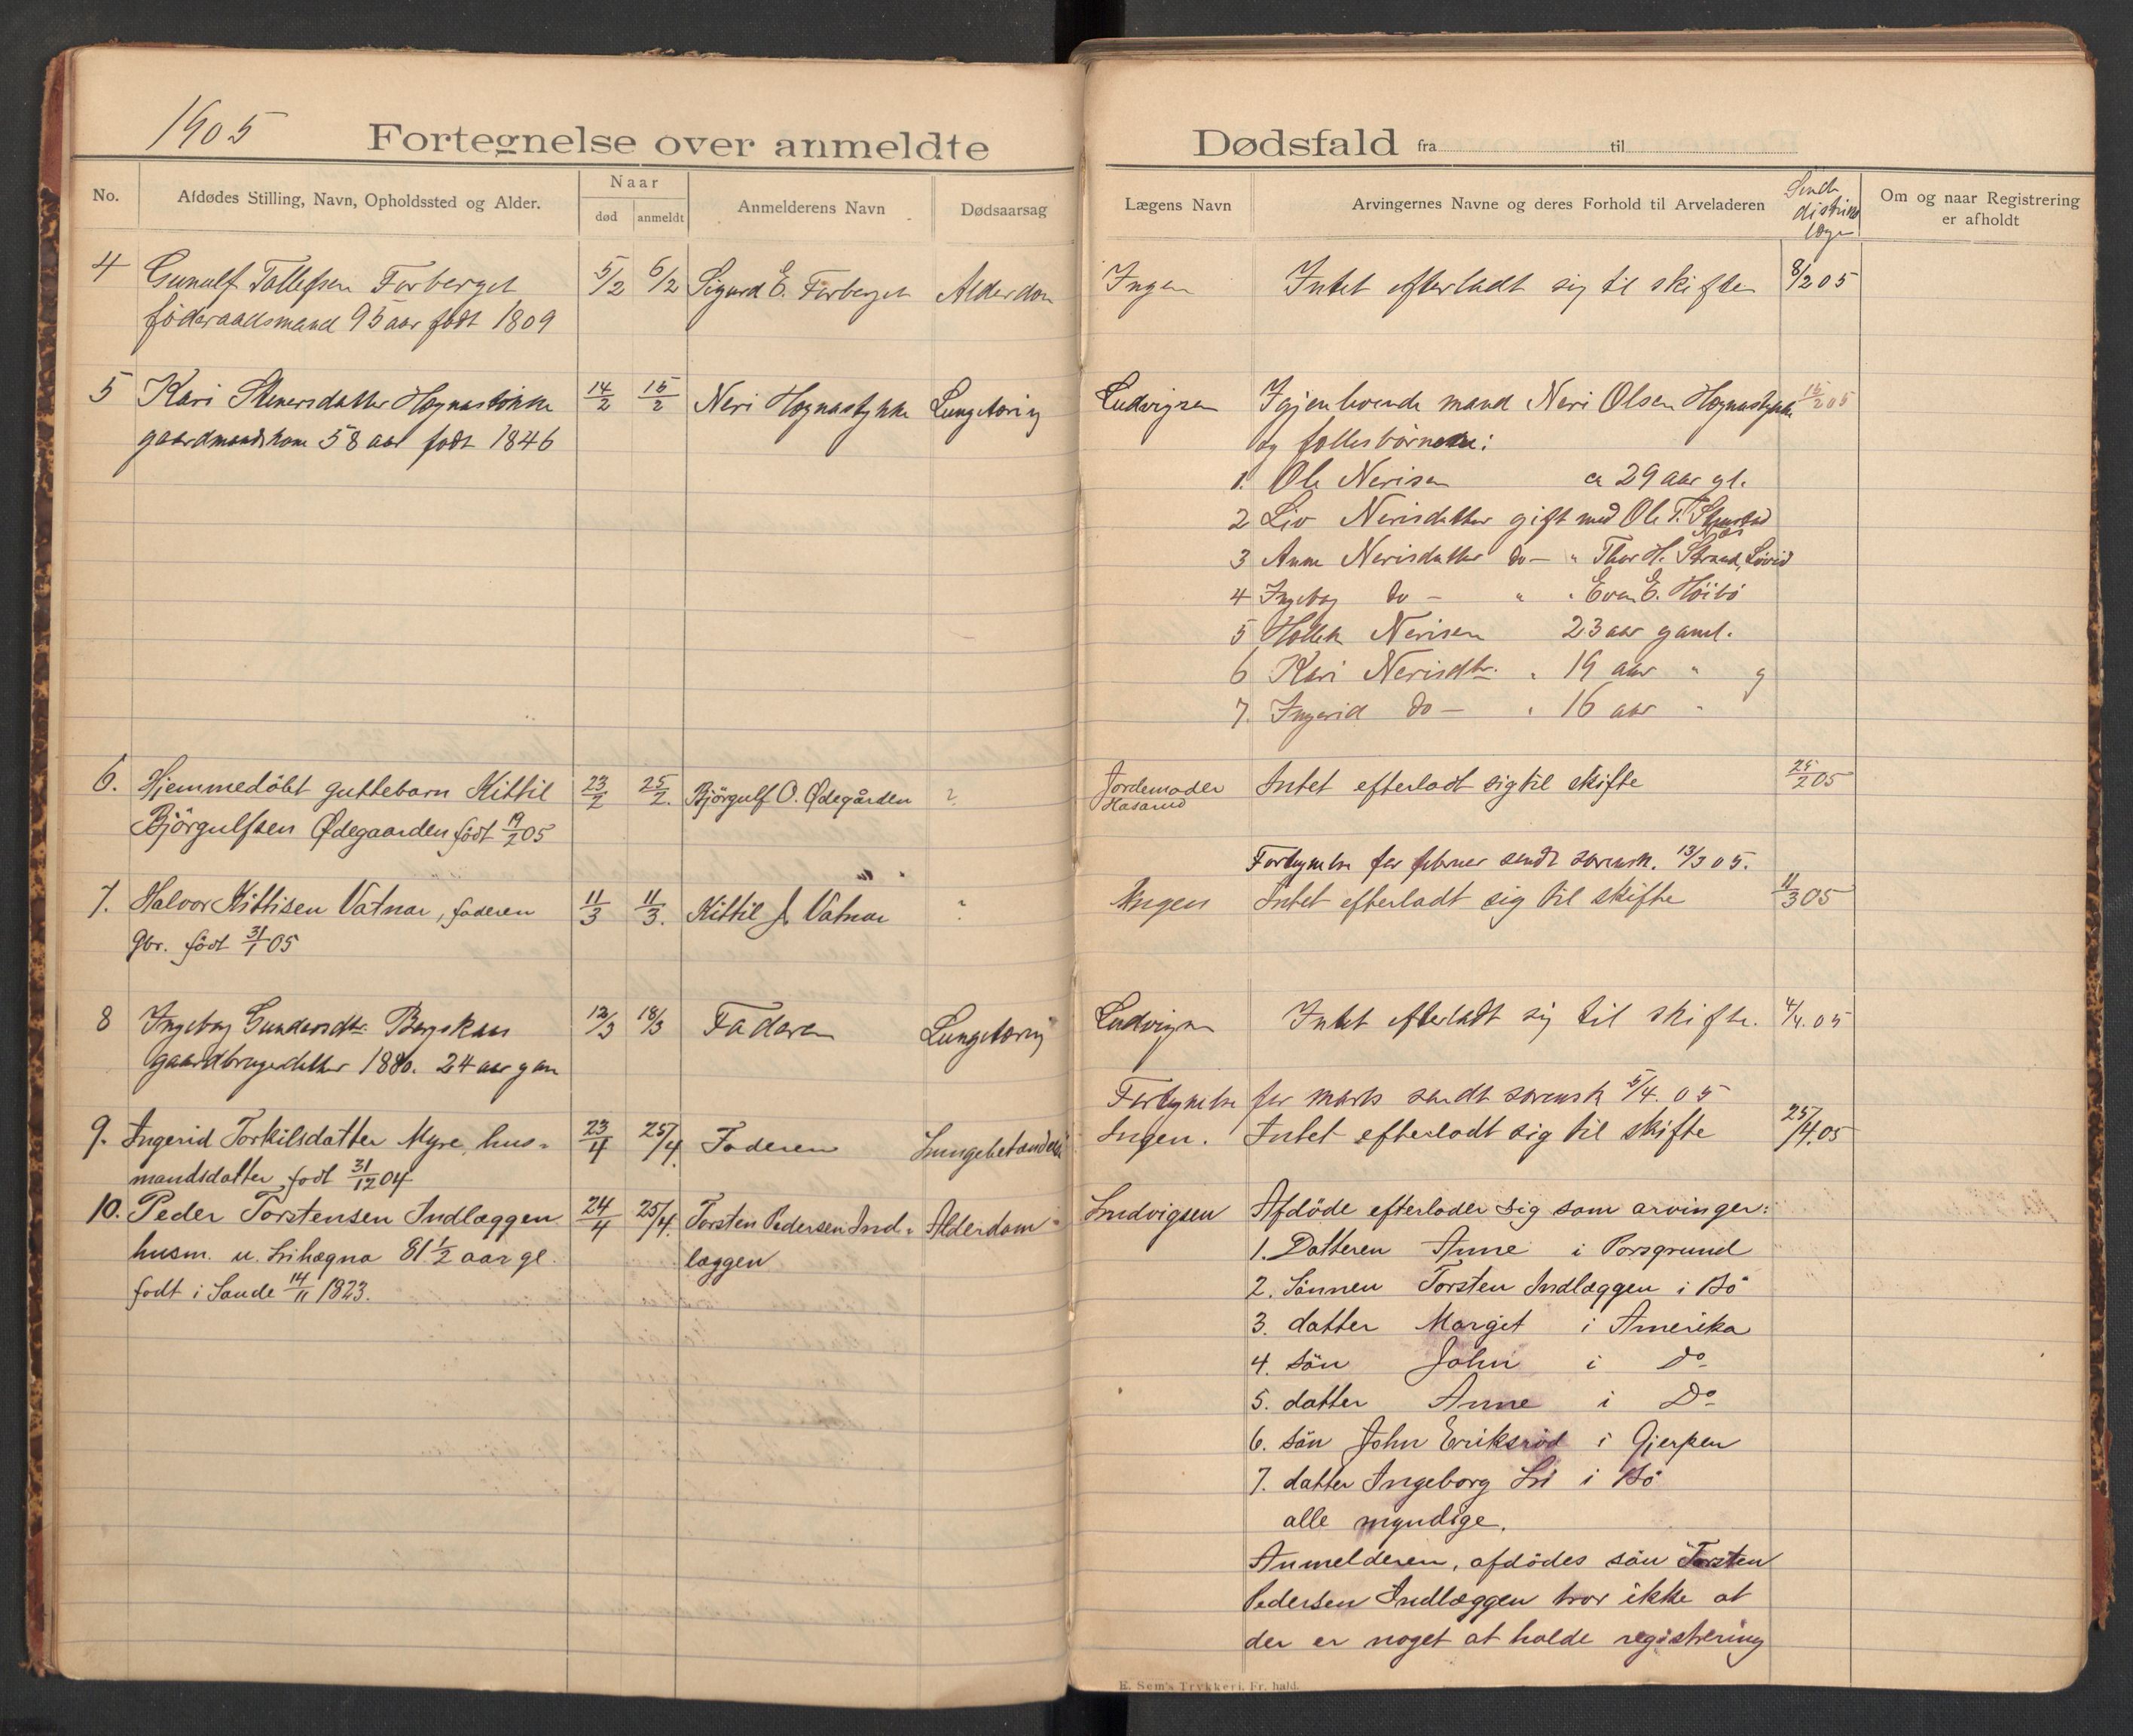 1905
Fortegnelse over anmeldte Dødsfald fra til
No. Afdødes Stilling, Navn, Opholdssted og Alder. Naar død anmeldt Anmelderens Navn Dødsaarsag Lægens Navn Arvingernes Navne og deres Forhold til Arveladeren Sendt distriktslæge Om og naar Registrering er afholdt
4 Gunulf Tollefsen Forberget 5/2 6/2 Sigurd E. Forberget Alderdom Ingen Intet efterladt sig til skifte 8/2 05
föderaadsmand 95 aar födt 1809
5 Kari Stenersdatter Hognastykke 14/2 15/2 Neri Hognastykke Lungetæring Ludvigsen Igjenlevende mand Neri Olsen Hognastykke 15/2 05
gaardmandskone 58 aar født 1846 og fellesbørnene:
1. Ole Nerisen ca 29 aar gl.
2 Liv Nerisdatter gift med Ole T.
3 Anne Nerisdatter do — " Thor H. Strand,
4 Ingebog do — " " Even E. Höibö
5 Halvor Nerisen 23 aar gaml.
6 Kari Nerisdtr. " 19 aar " g
7. Ingerid do — " 16 aar "
6. Hjemmedöbt guttebarn Kittil 23/2 25/2. Björgulf O. Ødegården ? Jordemoder Intet efterladt sig til skifte 25/2 05
Hasarud
Björgulfsen Ødegaarden födt 19/2 05
Fortegnelse for februar sendt sorensk. 13/3 05.
7. Halvor Kittilsen Vatnar, faderen 11/3 11/3. Kittil J. Vatnar ? Ingen Intet efterladt sig til skifte 11/3 05
gbr. födt 31/1 05
8 Ingebog Gundersdtr. Borgskaas 12/3 18/3 Faderen Lungetæring Ludvigsen Intet efterladt sig til skifte. 4/4.05
gaardbrugerdatter 1880. 24 aar gam
Fortegnelse for marts sendt sorensk 5/4. 05
9. Ingerid Torkilsdatter Myre, hus- 23/4 25/4. Faderen Lungebetændelse Ingen. Intet efterladt sig til skifte 25/4.05
mandsdatter, født 31/12 04
10. Peder Torstensen Indlæggen 24/4 25/4. Torsten Pedersen Ind- Alderdom Ludvigsen Afdöde efterlader sig som arvinger:
husm. u. Lihægna 81 1/2 aar gl. læggen 1. Datteren Anne i Porsgrund
født i Sande 14/11 1823. 2. Sönnen Torsten Indlæggen i Bö
3. datter Margit i Amerika
4. sön John i Do
5. datter Anne i Do
6. sön John Eriksröd i Gjerpen
7. datter Ingeborg Li i Bö
alle myndige.
Anmelderen, afdödes sön Torsten
Pedersen Indlæggen tror ikke at
der er noget at holde registrering
E. Sem's Trykkeri, Fr. hald.